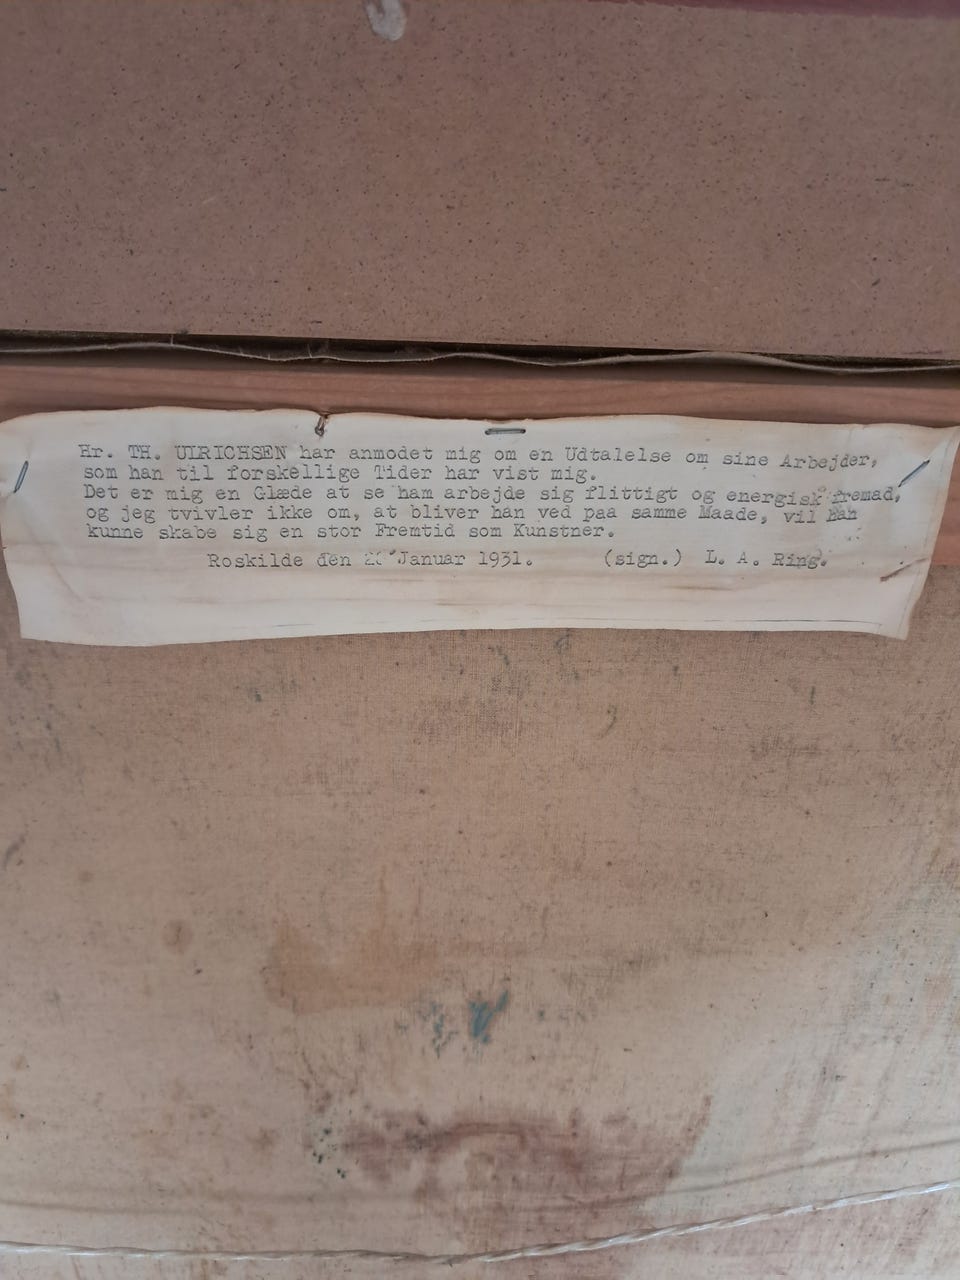 Hr. TH. UlRICHSEN har anmodet mig om en Udtalelse om sine Arbejder,
som han til forskellige Tider har vist mig.
Det er mig en Glæde at se ham arbejde sig flittigt og energisk fremad,
og jeg tvivler ikke om, at bliver han ved paa samme Maade, vil han
kunne skabe sig en stor Fremtid som Kunstner.
Roskilde den Januar 1931. (sign.) L. A. Ring.